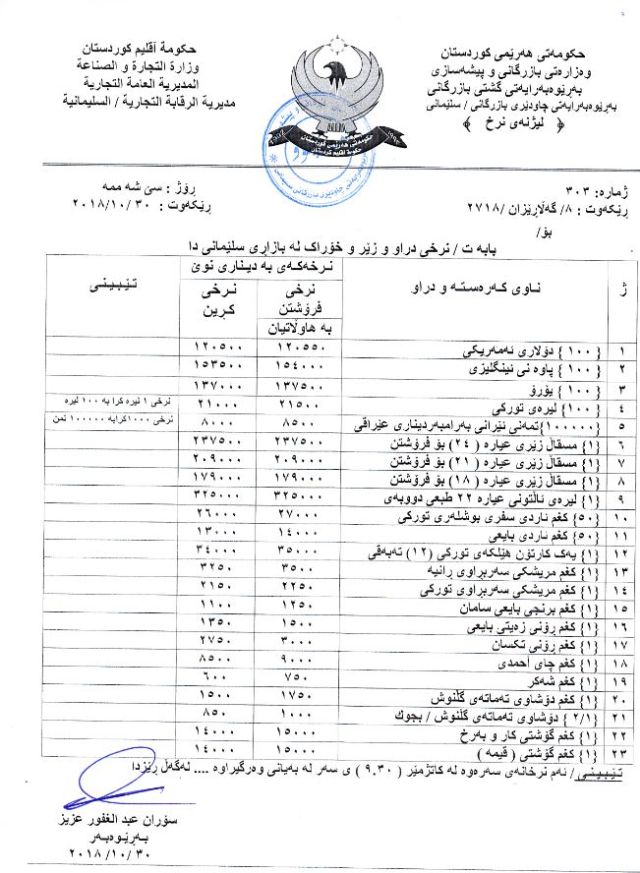 حكومەتی هەرێمی كوردستان
وەزارەتی بازرگانی و پیشەسازی
بەڕێوەبەرایەتی گشتی بازرگانی
بەڕێوەبەرایەتی چاودێری بازرگانی / سلێمانی
﴿ لیژنەی نرخ ﴾
حكومة أقليم كوردستان
وزارة التجارة و الصناعة
المديرية العامة التجارية
مديرية الرقابة التجارية / السليمانية
حكومەتی هەرێمی كوردستان
حكومة اقليم كردستان
ژمارە: ٣٠٣
ڕێكەوت : ٨/ گەڵاڕێزان /٢٧١٨
ڕۆژ : سێ شە ممە
ڕێكەوت : ٣٠ /١٠/ ٢٠١٨
بۆ/
بابە ت / نرخی دراو و زێر و خۆراك لە بازاڕی سلێمانی دا
ژ ناوی كەرەستە و دراو نرخەكەی بە دیناری نوێ تێبینی
نرخی فرۆشتن بە هاوڵاتیان نرخی كڕین
١ {١٠٠ } دۆلاری ئەمەریكی ١٢٠٥٥٠ ١٢٠٥٠٠
٢ {١٠٠ } پاوە نی ئینگلیزی ١٥٤٠٠٠ ١٥٣٥٠٠
٣ {١٠٠ } یۆرۆ ١٣٧٥٠٠ ١٣٧٠٠٠
٤ {١٠٠ } لیرەی توركی ٢١٥٠٠ ٢١٠٠٠ نرخی ١ لیرە كرا بە ١٠٠ لیرە
٥ {١٠٠٠٠٠}تمەنی ئێرانی بەرامبەردیناری عێراقی ٨٥٠٠ ٨٠٠٠ نرخی ١٠٠٠كرابە ١٠٠٠٠٠ تمن
٦ {١} مسقاڵ زێری عیارە ( ٢٤ ) بۆ فرۆشتن ٢٣٧٥٠٠ ٢٣٧٥٠٠
٧ {١} مسقاڵ زێری عیارە ( ٢١ ) بۆ فرۆشتن ٢٠٩٠٠٠ ٢٠٩٠٠٠
٨ {١} مسقاڵ زێری عیارە ( ١٨ ) بۆ فرۆشتن ١٧٩٠٠٠ ١٧٩٠٠٠
٩ {١} لیرەی ئاڵتونی عیارە ٢٢ طبعی دووبەی ٣٢٥٠٠٠ ٣٢٥٠٠٠
١٠ {٥٠} كغم ئاردی سفری بوشلەری توركی ٢٧٠٠٠ ٢٦٠٠٠
١١ {٥٠} كغم ئاردی بایعی ١٤٠٠٠ ١٣٠٠٠
١٢ {١} یەك كارتۆن هێلكەی توركی (١٢) تەبەقی ٣٥٠٠٠ ٣٤٠٠٠
١٣ {١} كغم مریشكی سەربڕاوی ڕانیە ٣٥٠٠ ٣٢٥٠
١٤ {١} كغم مریشكی سەربڕاوی توركی ٢٢٥٠ ٢١٥٠
١٥ {١} كغم برنجی بایعی سامان ١٢٥٠ ١١٠٠
١٦ {١} كغم ڕۆنی زەیتی بایعی ١٥٠٠ ١٣٥٠
١٧ {١} كغم ڕۆنی تكسان ٣٠٠٠ ٢٧٥٠
١٨ {١} كغم چای أحمدی ٩٠٠٠ ٨٥٠٠
١٩ {١} كغم شەكر ٧٥٠ ٦٠٠
٢٠ {١} كغم دۆشاوی تەماتەی گڵنوش ١٧٥٠ ١٥٠٠
٢١ {٢/١ } دۆشاوی تەماتەی گڵنوش / بچوك ١٠٠٠ ٨٥٠
٢٢ {١} كغم گۆشتی كار و بەرخ ١٥٠٠٠ ١٤٠٠٠
٢٣ {١} كغم گۆشتی ( قیمە ) ١٥٠٠٠ ١٤٠٠٠
تێبینی/ ئەم نرخانەی سەرەوە لە كاتژمێر ( ٩.٣٠ ) ی سەر لە بەیانی وەرگیراوە .... لەگەڵ ڕێزدا
سۆران عبد الغفور عزیز
بەڕێوەبەر
٣٠ /١٠/ ٢٠١٨